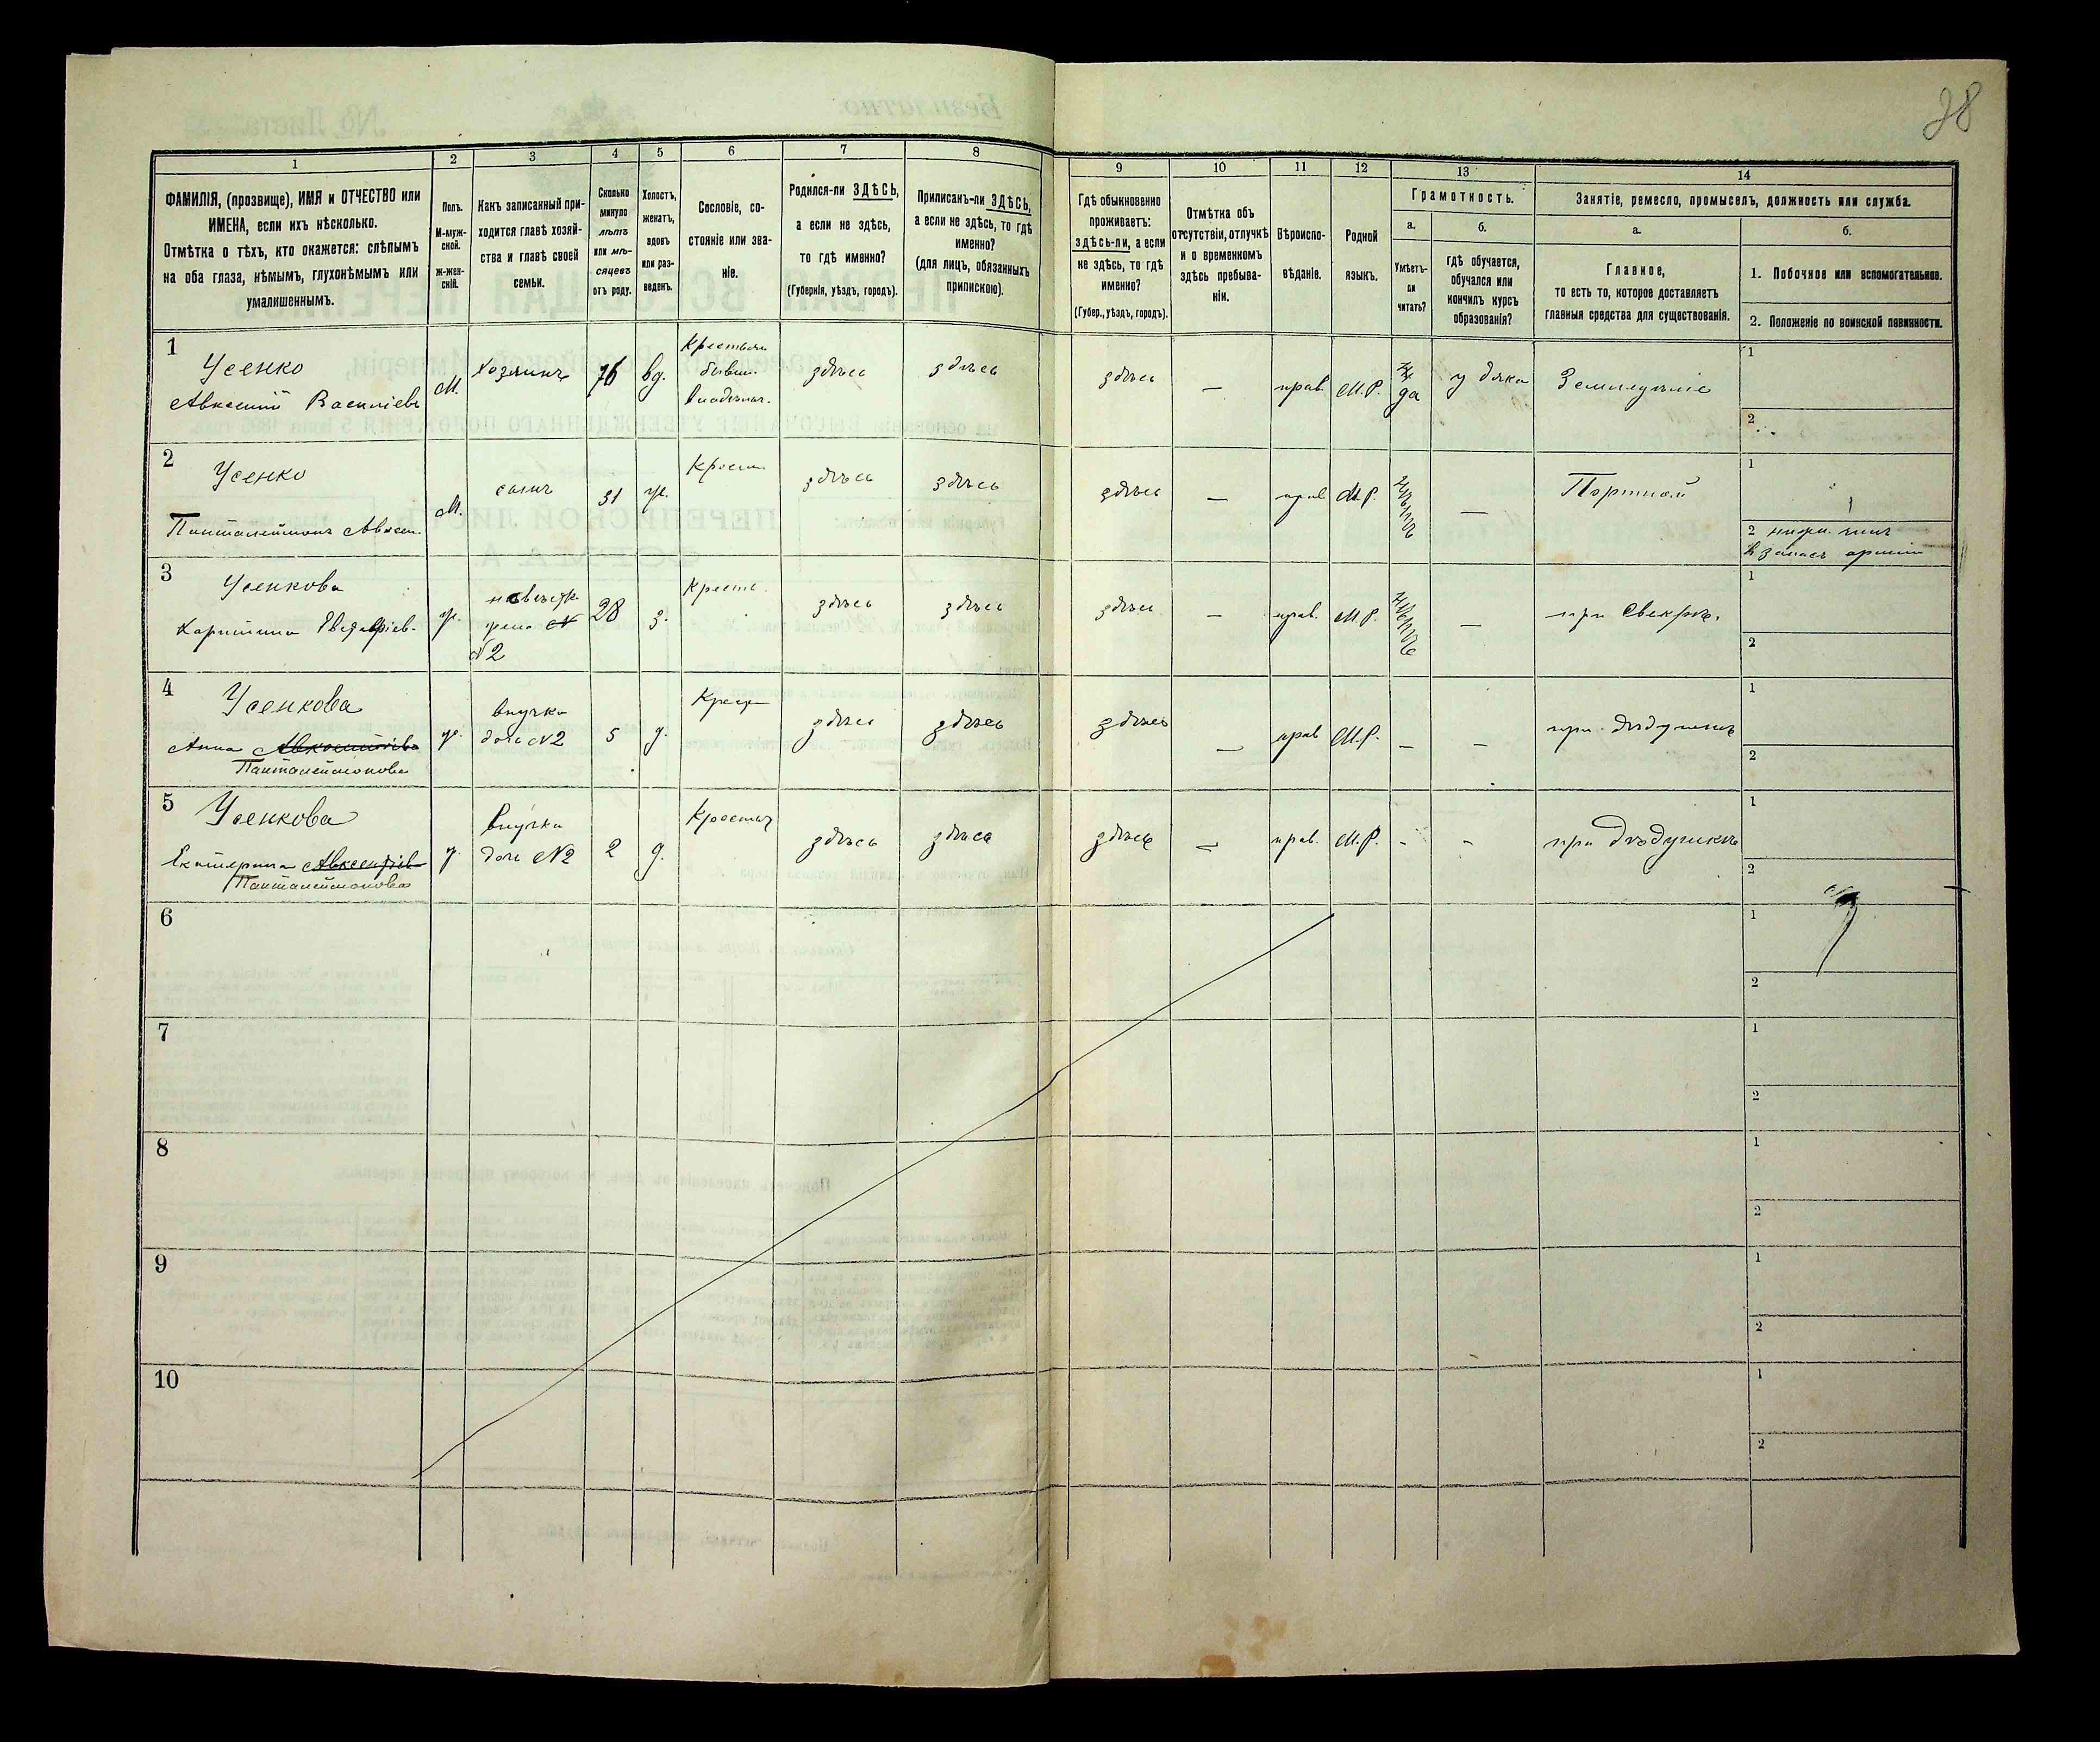 38
1 2 3 4 5 6 7 8 9 10 11 12 13 14
ФАМИЛІЯ, (прозвище), ИМЯ и ОТЧЕСТВО или
ИМЕНА, если ихъ нѣсколько.
Отмѣтка о тѣхъ, кто окажется: слѣпымъ
на оба глаза, нѣмымъ, глухонѣмымъ или
умалишеннымъ.
Полъ.
М-муж-
ской.
Ж-жен-
скій.
Какъ записанный при-
ходится главѣ хозяй-
ства и главѣ своей
семьи.
Сколько
минуло
лѣтъ
или мѣ-
сяцевъ
отъ роду.
Холостъ,
женатъ,
вдовъ
или раз-
веденъ.
Сословіе, со-
стояніе или зва-
ніе.
Родился-ли ЗДѢСЬ,
а если не здѣсь,
то гдѣ именно?
(Губернія, уѣздъ, городъ).
Приписанъ-ли ЗДѢСЬ,
а если не здѣсь, то гдѣ
именно?
(для лицъ, обязанныхъ
припискою).
Гдѣ обыкновенно
проживаетъ:
здѣсь-ли, а если
не здѣсь, то гдѣ
именно?
(Губер., уѣздъ, городъ).
Отмѣтка объ
отсутствіи, отлучкѣ
и о временномъ
здѣсь пребыва-
ніи.
Вѣроиспо-
вѣданіе.
Родной
языкъ.
Грамотность.
а.
Умѣетъ-
ли
читать?
б.
гдѣ обучается,
обучался или
кончилъ курсъ
образованія?
Занятіе, ремесло, промыселъ, должность или служба.
а.
Главное,
то есть то, которое доставляетъ
главныя средства для существованія.
б.
1. Побочное или вспомогательное.
2. Положеніе по воинской повинности.
1
Усенко
Авксентій Васильевъ
М.
Хозяинъ
76
вд.
бывш.
здѣсь
здѣсь
здѣсь
—
прав.
М.Р.
да
у дяка
Земледѣліе
1
2
2
Усенко
Панталеймонъ Авксен.
М.
сынъ
31
ж.
Крест.
здѣсь
здѣсь
здѣсь
—
прав.
М.Р.
—
Портной
1
2 нижн. чинъ
въ запасѣ арміи
3
Усенкова
ж.
жена
N2
28
з.
Кресть.
здѣсь
здѣсь
здѣсь
—
прав.
М.Р.
—
при свекрѣ.
1
2
4
Усенкова
Анна
Панталеймонова
ж.
внучка
дочь N2
5
д.
здѣсь
здѣсь
здѣсь
—
прав
М.Р.
—
—
при дѣдушкѣ
1
2
5
Усенкова
Екатерина
Панталеймонова
ж.
внучка
дочь N2
2
д.
здѣсь
здѣсь
здѣсь
—
прав.
М.Р.
-
-
при дѣдушкѣ
1
2
6
1
2
7
1
2
8
1
2
9
1
2
10
1
2